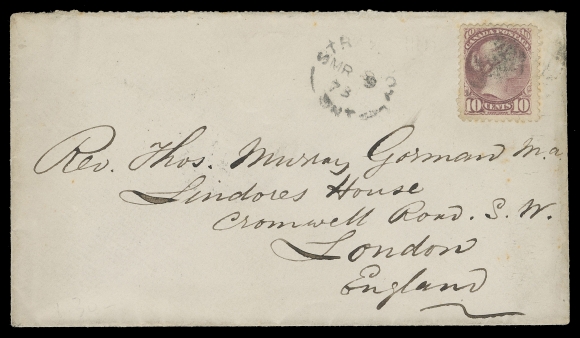 STR
MR 9
73
ONT
CANADA POSTAGE
10 CENTS 10
Rev. Thos. Murray Gorman M.a
Lindores House
Cromwell Road. S. W.
London
England